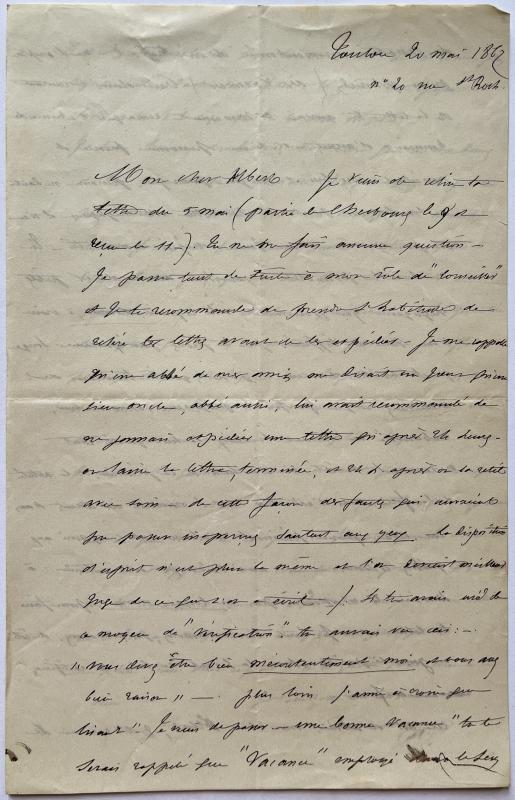 Toulon 20 mai 1867
n° 20 rue St Roch.
Mon cher Albert Je viens de relire ta
lettre du 5 mai (partie de Cherbourg le 9 et
reçue le 11-) Tu ne me fais aucune question -
Je passe tout de suite à mon rôle de "Conseiller"
et je te recommande de prendre l'habitude de
relire tes lettres avant de les expédier - Je me rappelle
qu'un abbé de mes amis me disait un jour qu'un
sien oncle, abbé aussi, lui avait recommandé de
ne jamais expédier une lettre qu'après 24 heures
on laisse la lettre, terminée, et 24 h après on la relit
avec soin - de cette façon des fautes qui auraient
pu passer inaperçues sautent aux yeux la disposition
d'esprit n'est plus la même et l'on devient meilleur
juge de ce que l'on a écrit. Si tu avais usé de
ce moyen de "vérification" tu aurais vu ceci : -
"vous devez être bien mécontentement moi et vous avez
bien raison" - . plus loin j'aime à croire que
lisant "Je viens de passer - une bonne vacance" tu te
serais rappelé que "Vacance" employé dans le sens